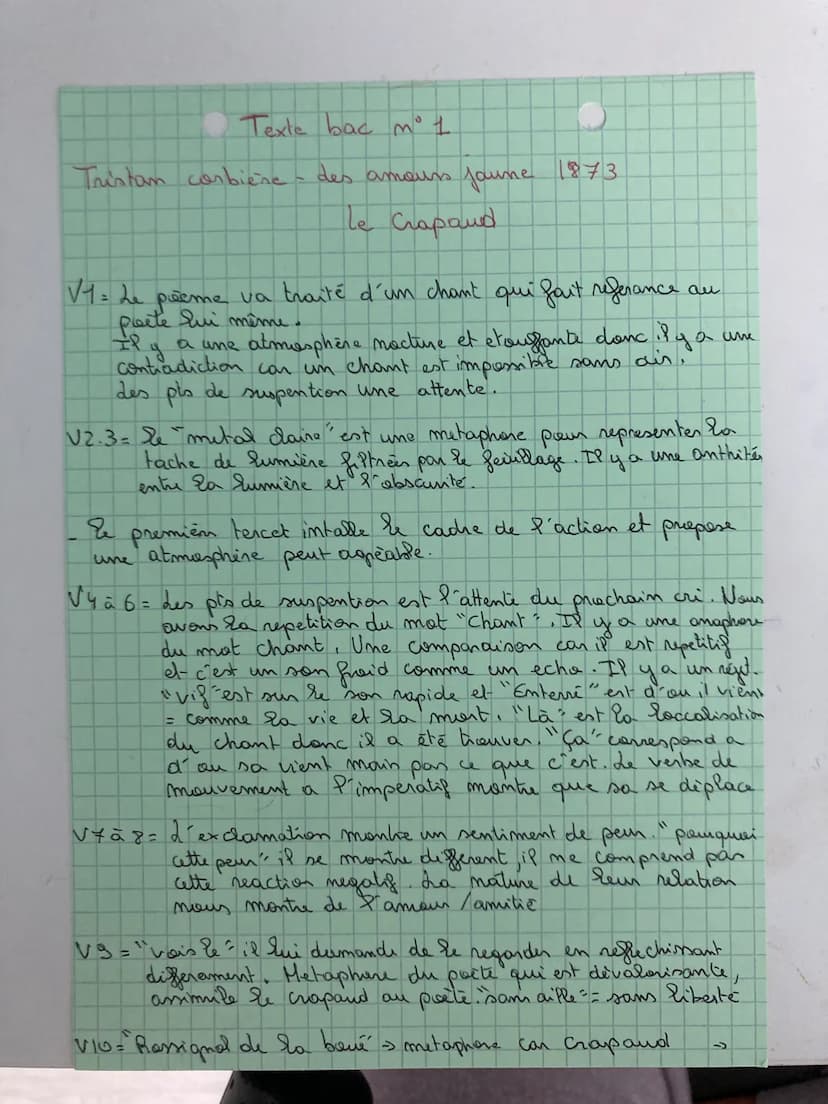 Texte bac n° 1
Tristan corbière = des amours jaune 1873
le Crapaud
V1 = Le poème va traité d'un chant qui fait referance au
poète lui même.
Il y a une atmosphère nocture et etouffante donc il y a une
contradiction car un chant est impossible sans air.
des pts de suspention une attente.
V2.3 = le "metal claire" est une metaphore pour representer la
tache de lumière filtrées par le feuillage. Il y a une anthités
entre la lumière et l'obscurité.
- le premièr tercet intalle le cadre de l'action et propose
une atmosphère peut agréable.
V4 à 6 = Les pts de suspention est l'attente du prochain cri. Nous
avons la repetition du mot "chant". Il y a une anaphore
du mot chant. Une comparaison car il est repetitif
et c'est un son froid comme un echo. Il y a un rejet.
"vif" est sur le son rapide et "Enterré" est d'ou il vient
= comme la vie et la mort. "Là" est la loccalisation
du chant donc il a été trouver. "Ça" correspond a
d'ou sa vient main pas ce que c'est. Le verbe de
mouvement a l'imperatif montre que sa se déplace
V7 à 8 = L'exclamation montre un sentiment de peur. "pourquoi
cette peur" il se montre different, il ne comprend pas
cette reaction negatif. La nature de leur relation
nous montre de l'amour / amitié
V9 = "vois le" = il lui demande de le regarder en reflechissant
differament. Métaphore du poète qui est dévalorisante,
assimile le crapaud au poète. "sans aille" = sans liberté
V10 = "Rossignol de la boué" → metaphore car Crapaud →